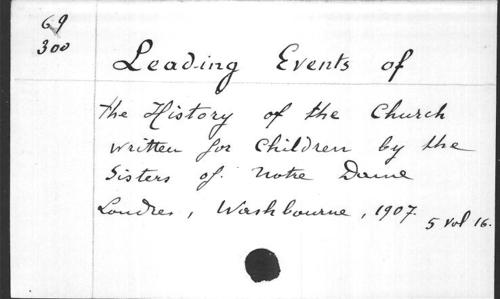 69
300
Leading Events of
the History of the Church
written for Children by the
Sisters of Notre Dame
Londres, Washbourne, 1907.
5 vol 16.